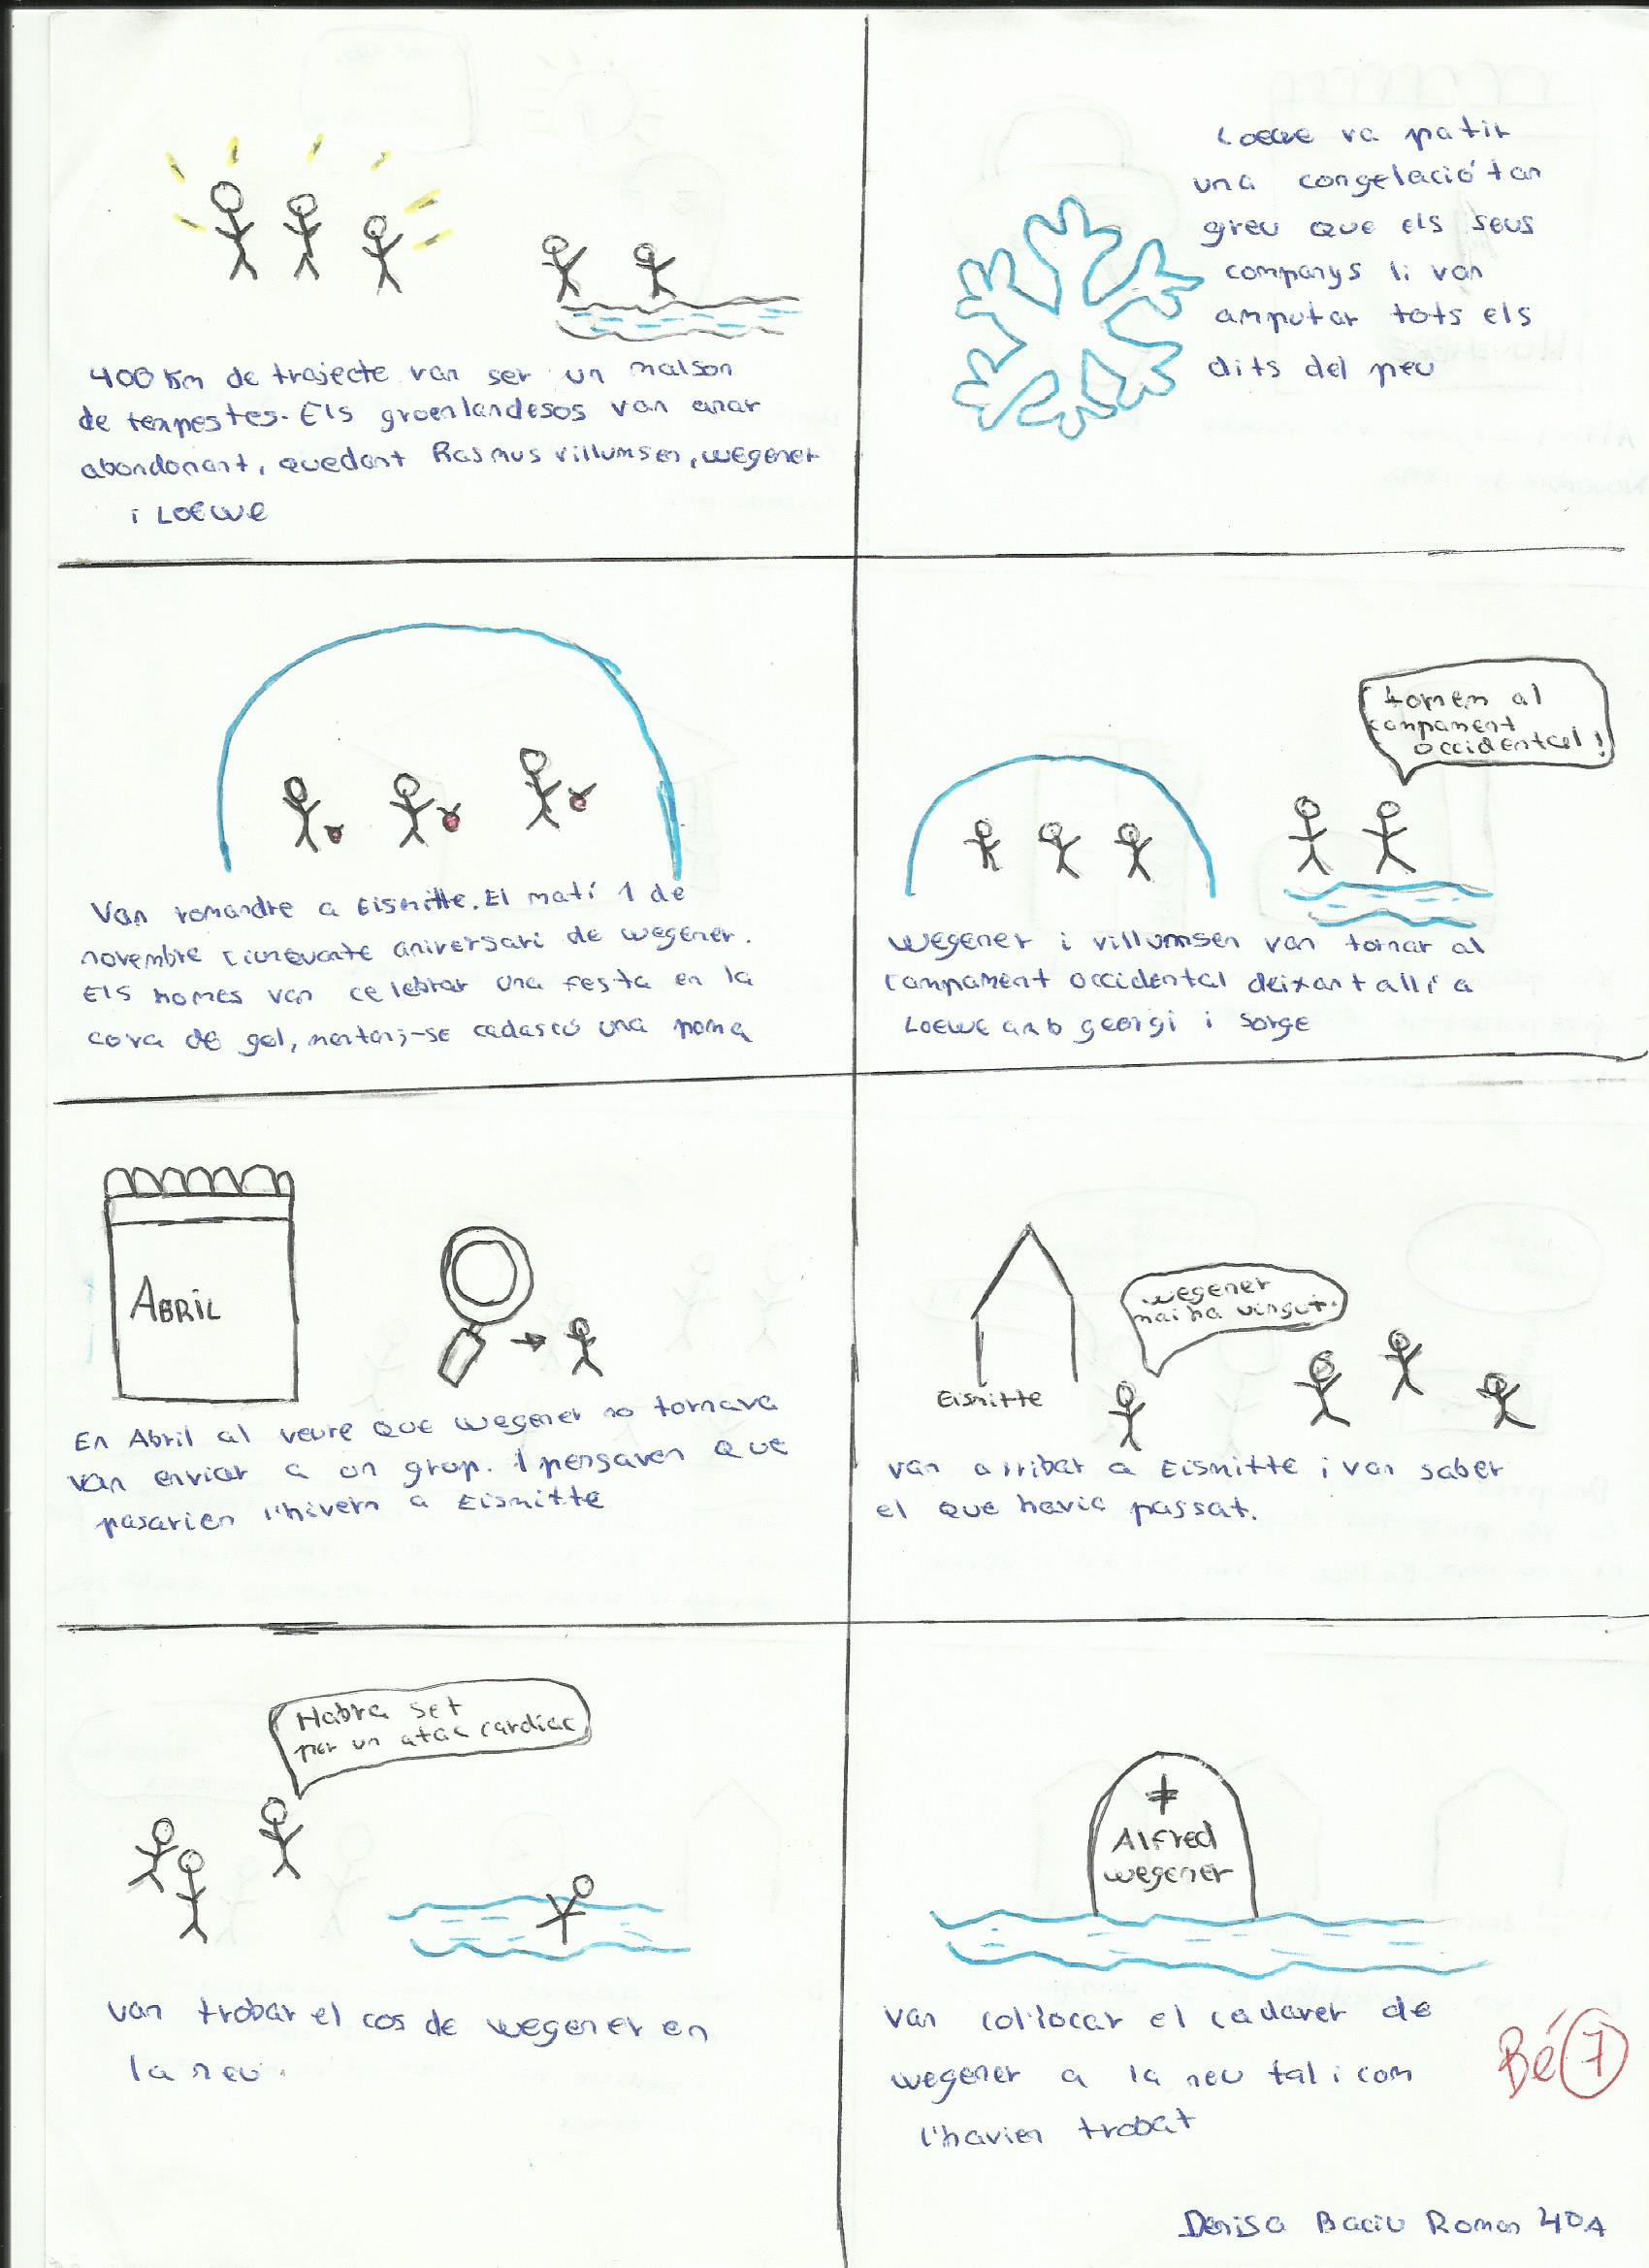 400 Km de trajecte van ser un malson
de tempestes. Els groenlandesos van anar
abandonant, quedant Rasmus villumsen, wegener
i Loewe
Loewe va patir
una congelació tan
greu que els seus
companys li van
amputar tots els
dits del peu
Van romandre a Eismitte. El matí 1 de
novembre cinquante aniversari de wegener.
Els homes van celebrar una festa en la
cova de gel, menjanj-se cadascú una poma
tornem al
campament
occidental!
wegener i villumsen van tornar al
campament occidental deixant allí a
Loewe amb georgi i Sorge
ABRIL
En Abril al veure que wegener no tornava
van enviar a un grup. I pensaven que
pasarien l'hivern a Eismitte
wegener
mai ha vingut.
Eismitte
van arribar a Eismitte i van saber
el que havia passat.
Habra set
per un atac cardiac
van trobar el cos de wegener en
la neu.
Alfred
wegener
van col·locar el cadaver de
wegener a la neu tal i com
l'havien trobat
Bé 7
Denisa Baciu Roman 4DA